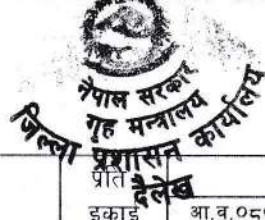 नेपाल सरकार
गृह मन्त्रालय
जिल्ला प्रशासन कार्यालय
दैलेख
प्रति
इकाई
आ.व.०८